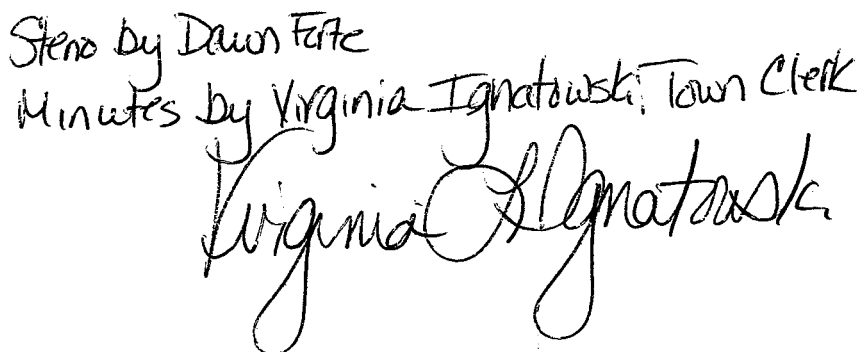 Steno by Dawn Forte
Minutes by Virginia Ignatowski, Town Clerk
Virginia L Ignatowski